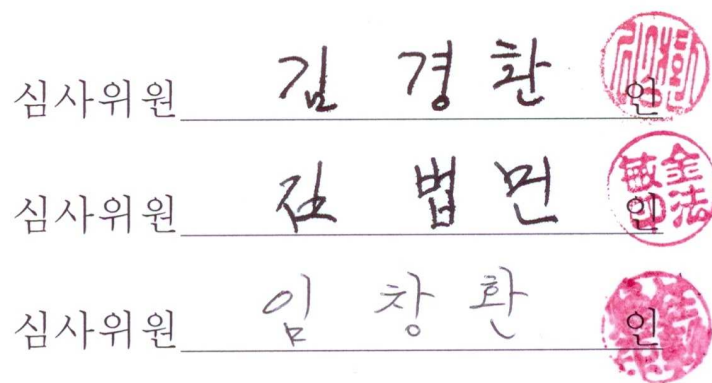 심사위원 김 경 환 인
심사위원 김 법 민 인
심사위원 임 창 환 인